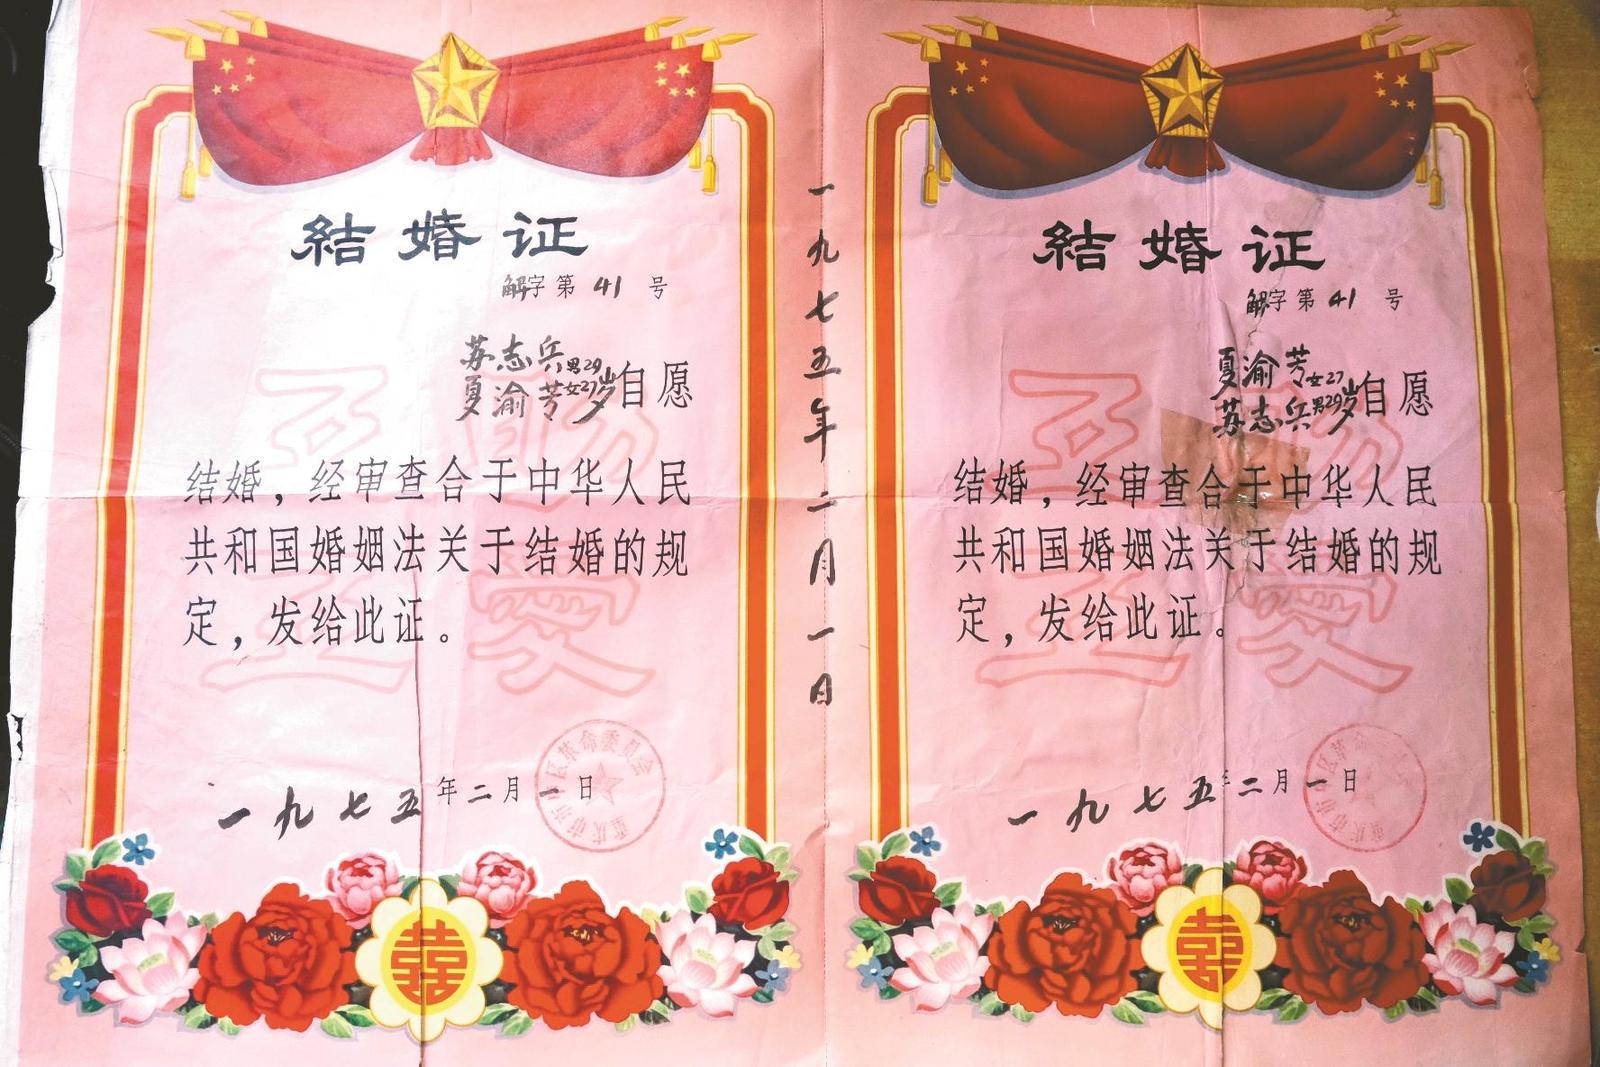 結婚证
解字第41号
苏志兵男29
夏渝芳女27岁自愿
结婚，经审查合于中华人民
共和国婚姻法关于结婚的规
定，发给此证。
互助
互爱
一九七五年二月一日
重庆市市中区革命委员会
囍
一九七五年二月一日
結婚证
解字第41号
夏渝芳女27
苏志兵男29岁自愿
结婚，经审查合于中华人民
共和国婚姻法关于结婚的规
定，发给此证。
互助
互爱
一九七五年二月一日
重庆市市中区革命
囍